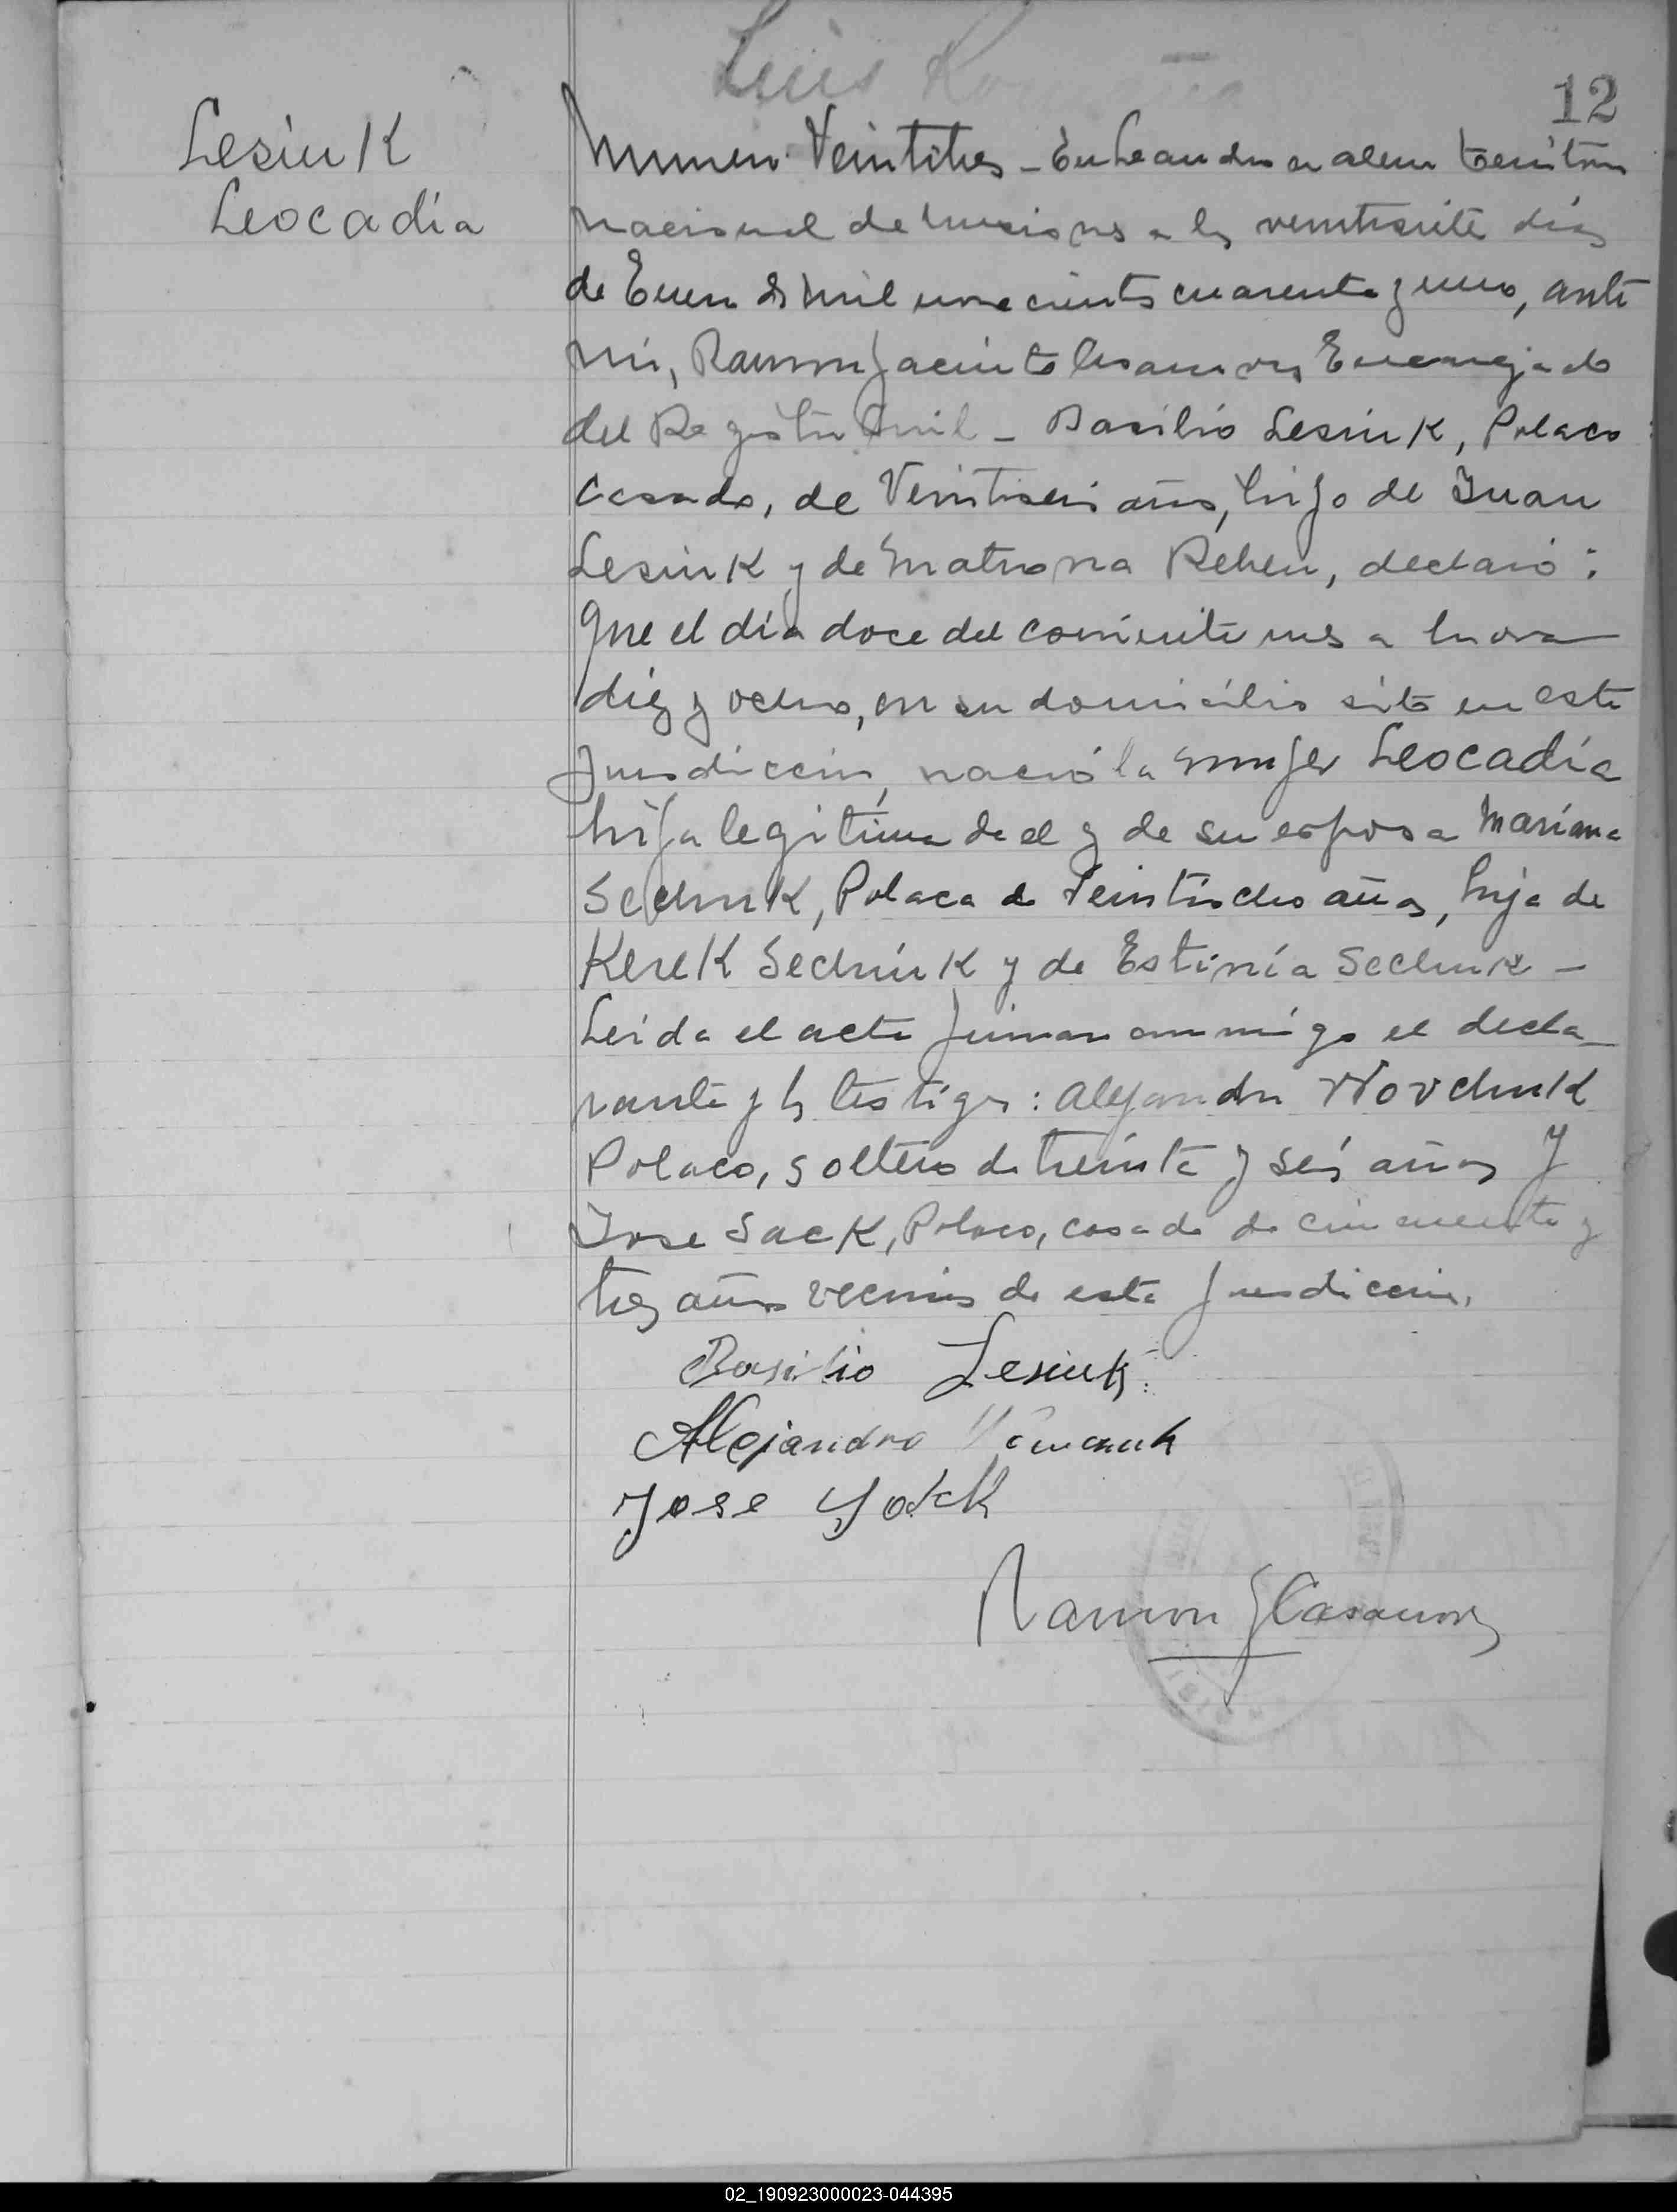 Luis
12
Lesiuk
Leocadia
Numero Veintitres - En Leandro n alem territorio
nacional de Misiones a los veintisiete dias
de Enero de mil novecientos cuarenta y uno, ante
mi, Ramon Jacinto Casanova Encargado
del Registro Civil - Basilio Lesiuk, Polaco
casado, de Veintiseis años, hijo de Juan
Lesiuk y de Matrona Reheu, declaró:
Que el dia doce del corriente mes a hora
diez y ocho, en su domicilio sito en esta
Jurisdiccion, nació la mujer Leocadia
hija legitima de el y de su esposa Mariana
Sechuk, Polaca de Veintiocho años, hija de
Kerek Sechiuk y de Estinía Sechuk -
Leida el acta firman conmigo el decla-
rante y los testigos: Alejandro Wovchuk
Polaco, soltero de treinta y seis años y
Jose Sack, Polaco, casado de cincuenta y
tres años vecinos de esta Jurisdiccion.
Basilio Lesiuk
Alejandro
Jose
Ramon J Casanova
02_190923000023-044395